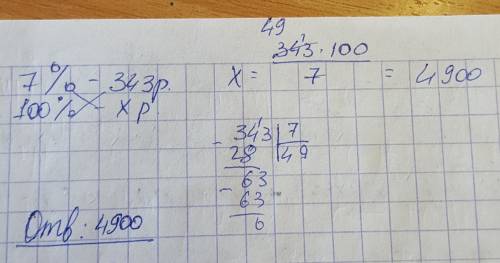 7% - 343р.
100% - х р
49
х = 343·100 / 7 = 4900
- 343 | 7
28 | 49
- 63
63
0
Отв: 4900